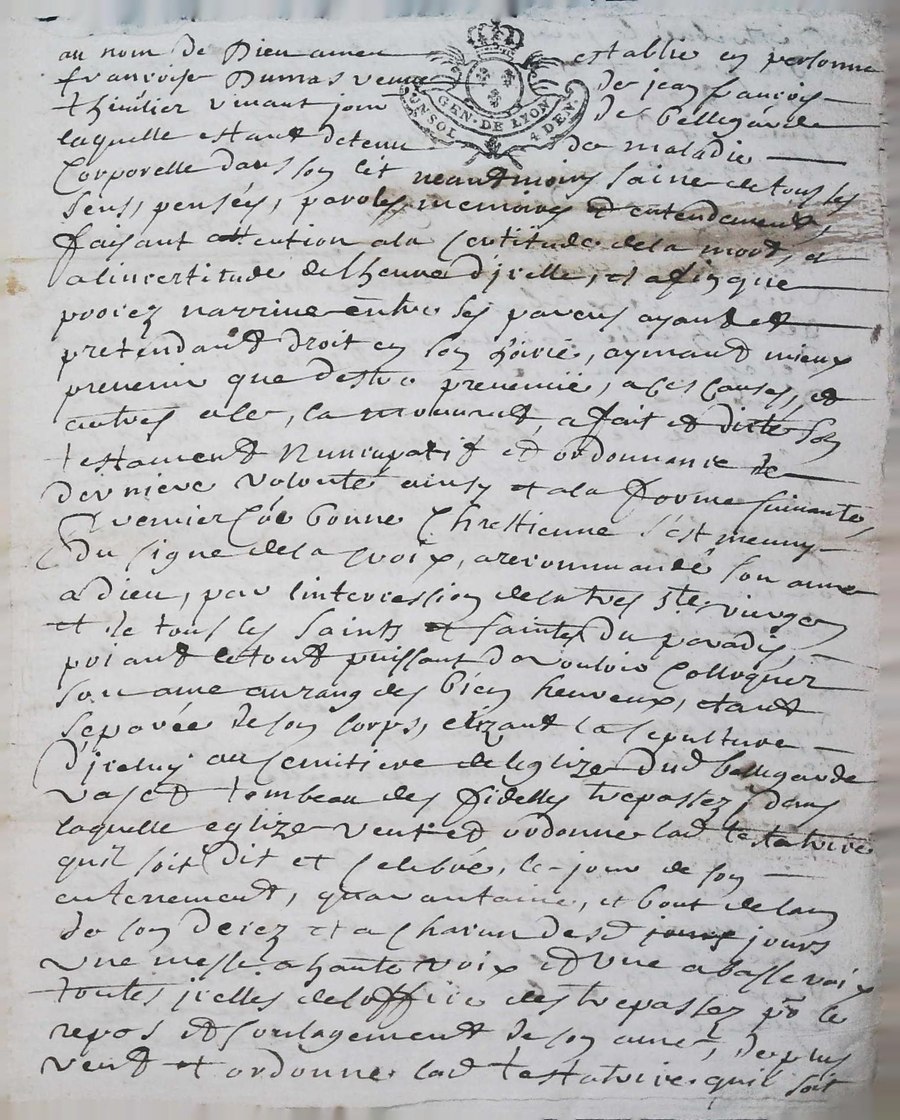 au nom de Dieu amen establie en personne
francoise Dumas veuve de jean francois
thinilier vivant jour de bellegarde
UN SOL GEN. DE LYON 4 DEN.
laquelle estant detenu de maladie
Corporelle dans son lit neantmoins saine de tous les
sens, pensées, parolles memoires et entendement,
faisant attention a la Certitude de la mort, et
a lincertitude de lheure d'jcelle, et afin que
proces narrive entre ses parens ayant et
pretendant droit en son hoirie, aymant mieux
prevenir que destre prevenue, a ces Causes, et
autres elle, la mouvant, a fait et dicte son
testament Nuncupatif et ordonnance de
derniere volonté ainsy et a la forme suivante,
Premier Coe bonne Chrestienne s'est muny
Du signe de la Croix, a recommandé son ame
a Dieu, par lintercession de la tres ste vierge
et de tous les saints et saintes du paradis,
priant le tout puissant de vouloir Colloquer
son ame au rang des bien heureux, etant
separée de son Corps, elizant la sepulture
D'jceluy au Cemitiere de leglize dud bellegarde
vas et tombeau des fidelles trepassez, dans
laquelle eglize veut et ordonne lad testatrice
quil soit Dit et Celebré, le jour de son
enterrement, quarantaine, et bout de lan
de son decez et a Chacun desd jours
une messe a haute voix et une a basse voix
toutes jcelles de loffice des trepassez pr le
repos et soulagement de son ame, de plus
veut et ordonne lad testatrice quil soit